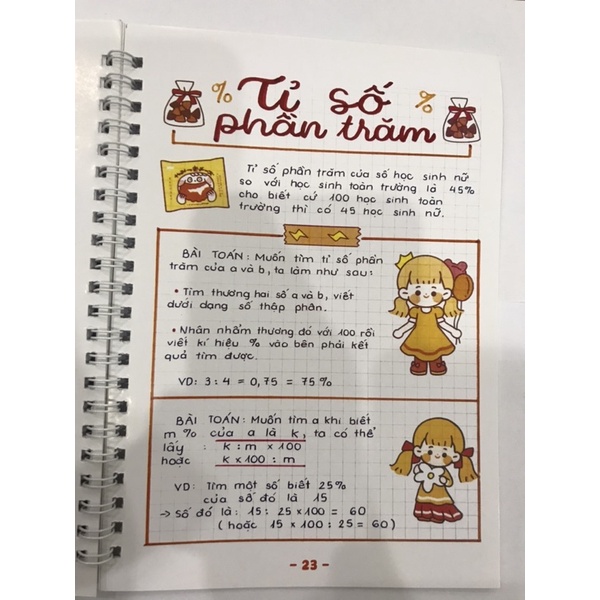 % Tỉ số %
phần trăm
Tỉ số phần trăm của số học sinh nữ
so với học sinh toàn trường là 45%
cho biết cứ 100 học sinh toàn
trường thì có 45 học sinh nữ.
BÀI TOÁN: Muốn tìm tỉ số phần
trăm của a và b, ta làm như sau:
• Tìm thương hai số a và b, viết
dưới dạng số thập phân.
• Nhân nhẩm thương đó với 100 rồi
viết kí hiệu % vào bên phải kết
quả tìm được.
VD: 3 : 4 = 0,75 = 75%
BÀI TOÁN: Muốn tìm a khi biết
m% của a là k, ta có thể
lấy : k : m x 100
hoặc k x 100 : m
VD: Tìm một số biết 25%
của số đó là 15
→ Số đó là: 15 : 25 x 100 = 60
(hoặc 15 x 100 : 25 = 60)
- 23 -